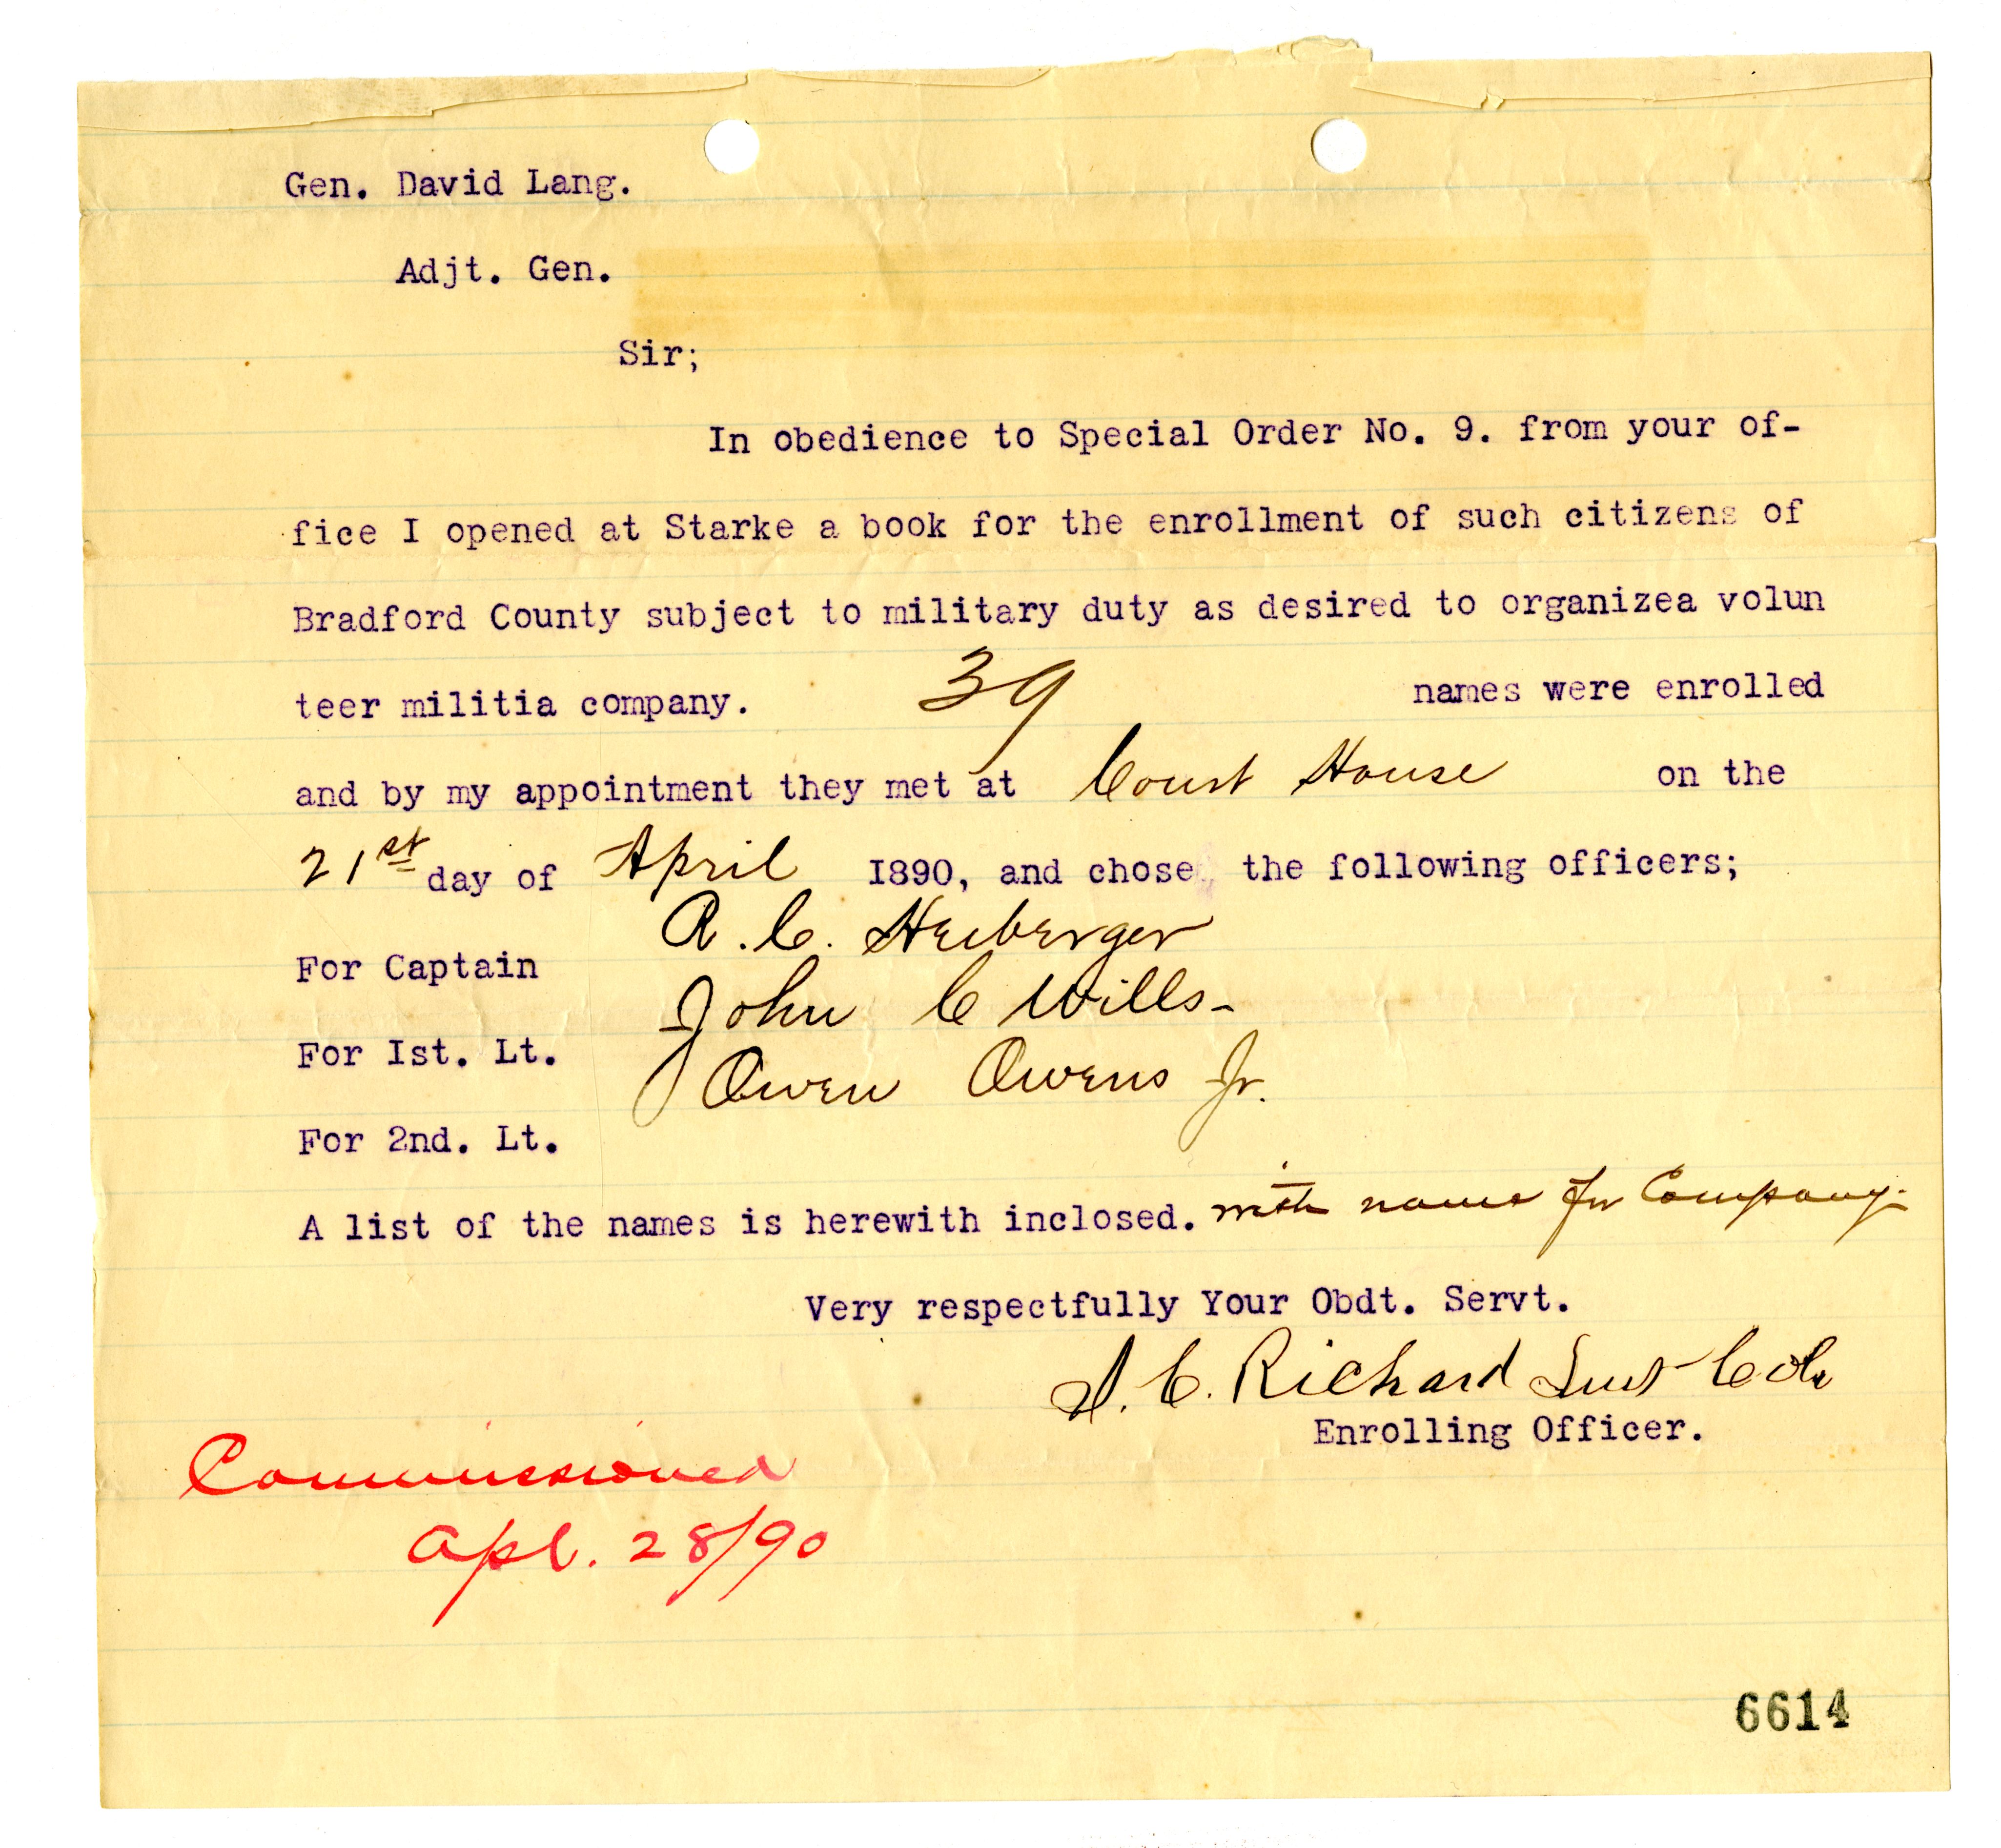 Gen. David Lang.
Adjt. Gen.
Sir;
In obedience to Special Order No. 9. from your of-
fice I opened at Starke a book for the enrollment of such citizens of
Bradford County subject to military duty as desired to organizea volun
teer militia company. 39 names were enrolled
and by my appointment they met at Court House on the
21st day of April I890, and chose the following officers;
For Captain R. C. Heiberger
For Ist. Lt. John C Wills-
For 2nd. Lt. Owen Owens Jr.
A list of the names is herewith inclosed. with name for Company.
Very respectfully Your Obdt. Servt.
C. Richard
Enrolling Officer.
Commissioned
Apl. 28/90
6614